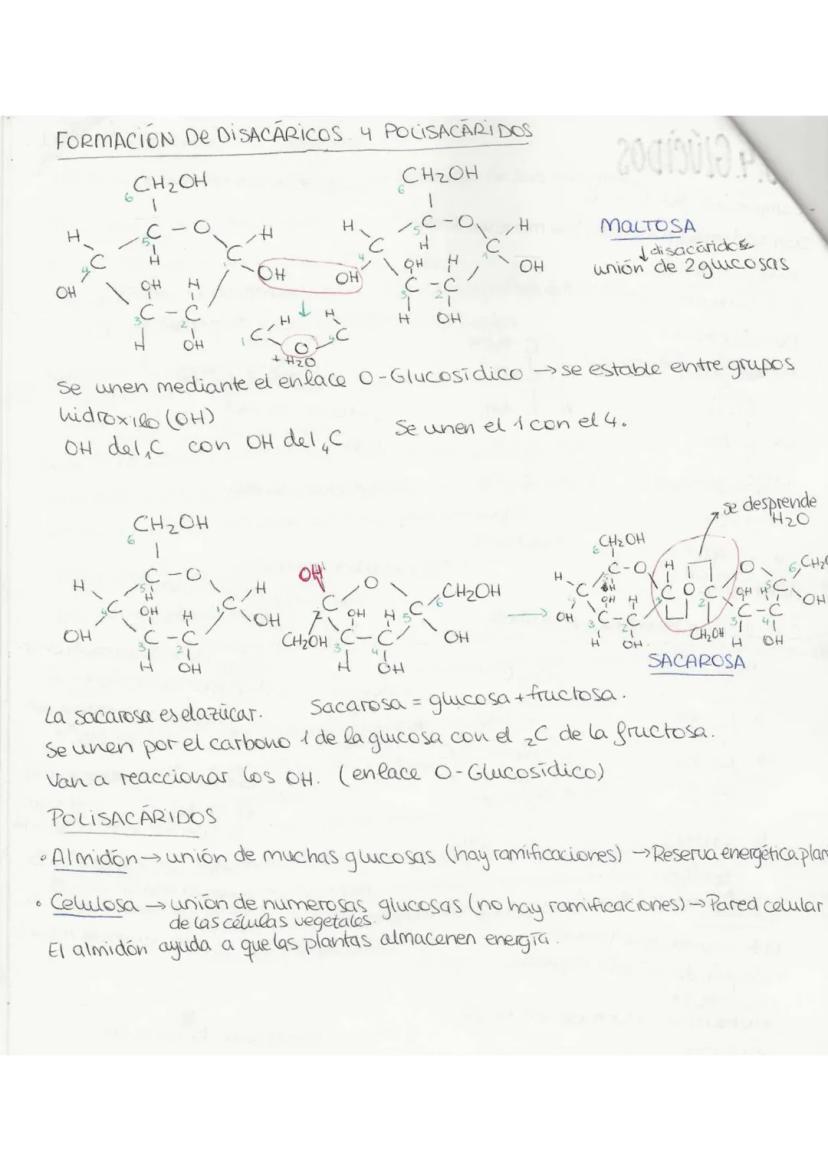 FORMACIÓN DE DISACÁRICOS Y POLISACÁRIDOS
CH2OH
6
CH2OH
6
MALTOSA
↓ disacárido
unión de 2 glucosas
H C C - O C H OH
OH 4 5 H OH H
C - C
3 2
H OH
H C C - O C H
OH 4 5 H 1 OH
OH H
C - C
3 2
H OH
↓
1C H O H 4C
+ H2O
Se unen mediante el enlace O-Glucosídico → se estable entre grupos
hidroxilo (OH)
OH del 1C con OH del 4C
Se unen el 1 con el 4.
se desprende
H2O
CH2OH
6
H C C - O C H
OH 4 5 H 1 OH
OH H
C - C
3 2
H OH
OH
O
C 2 OH H 5 C CH2OH
6
CH2OH C - C OH
3 4
H OH
→
CH2OH
6
H C C - O H C O C O C CH2
OH 4 5 OH H 1 2 OH H 5 6 OH
C - C CH2OH C - C
3 2 3 4
H OH H OH
SACAROSA
La sacarosa es el azúcar.
Sacarosa = glucosa + fructosa.
Se unen por el carbono 1 de la glucosa con el 2C de la fructosa.
Van a reaccionar los OH. (enlace O-Glucosídico)
POLISACÁRIDOS
• Almidón → unión de muchas glucosas (hay ramificaciones) → Reserva energética plan
• Celulosa → unión de numerosas glucosas (no hay ramificaciones) → Pared celular
de las células vegetales.
El almidón ayuda a que las plantas almacenen energía.